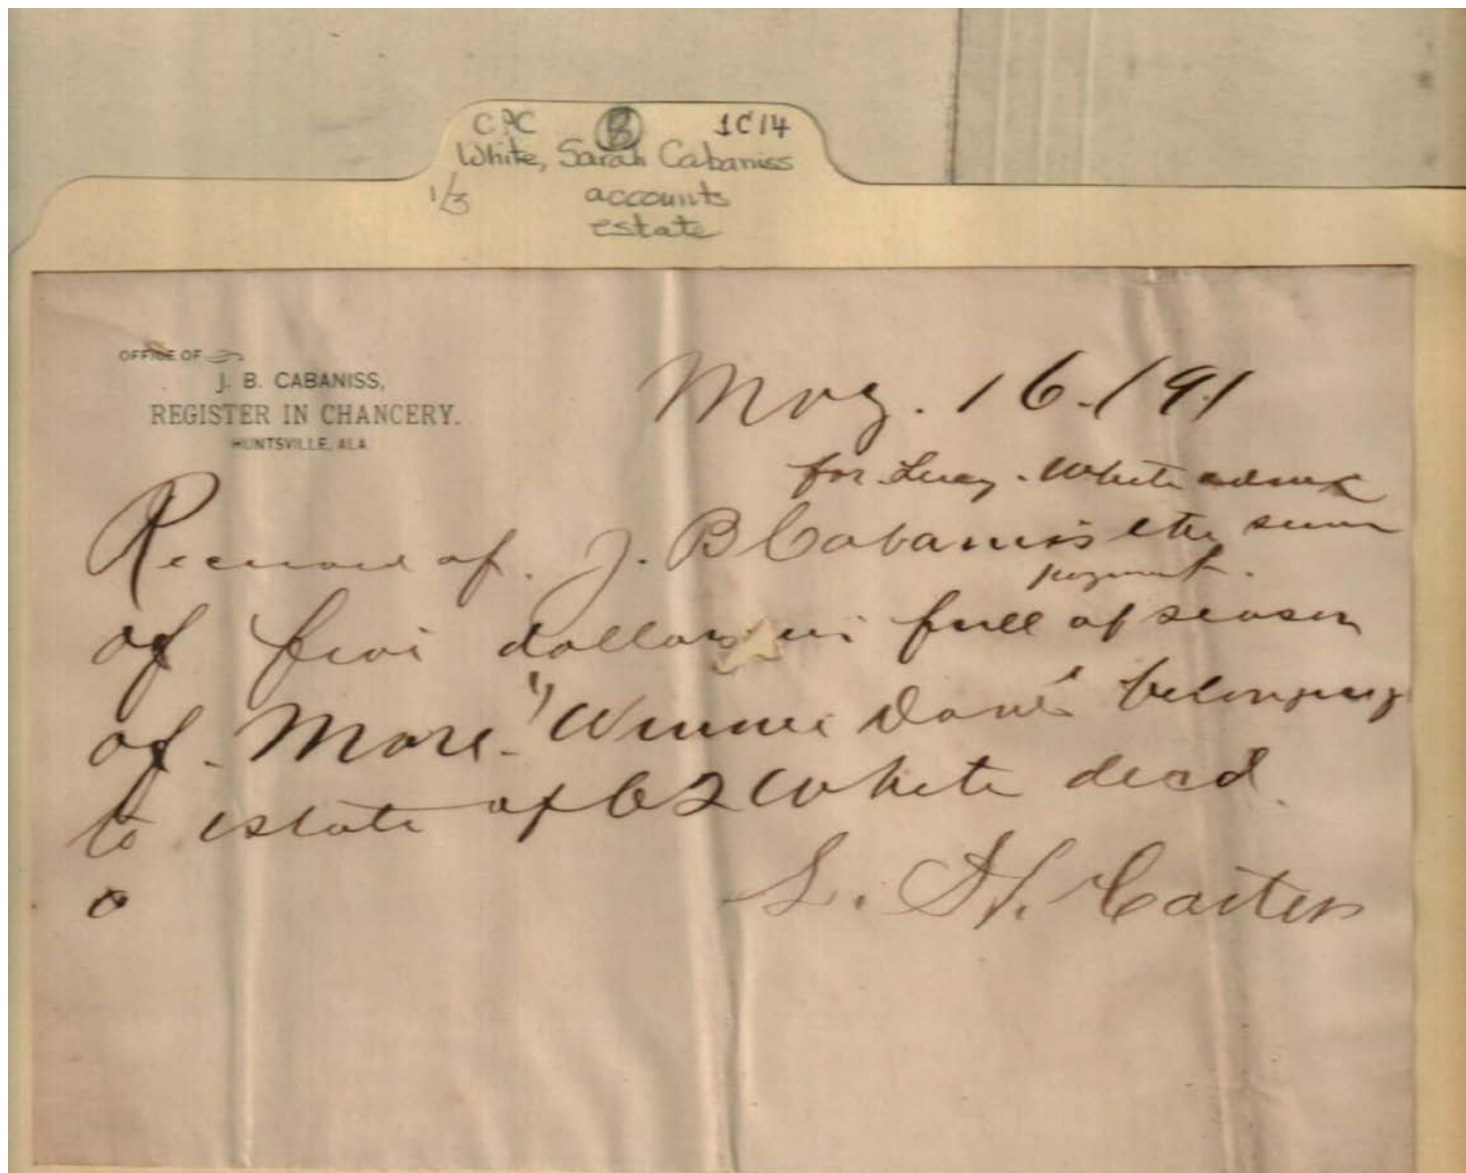 CPC 8 1C14
White, Sarah Cabaniss
1/3 accounts
estate
OFFICE OF
J. B. CABANISS,
REGISTER IN CHANCERY.
HUNTSVILLE, ALA
May. 16 - /91
for Lucy. White admx
Received of. J. B Cabaniss the sum
payment.
of five dollars in full of season
of. Mare. "Winnie Davis" belonging
to estate of White decd.
L. H. Carter